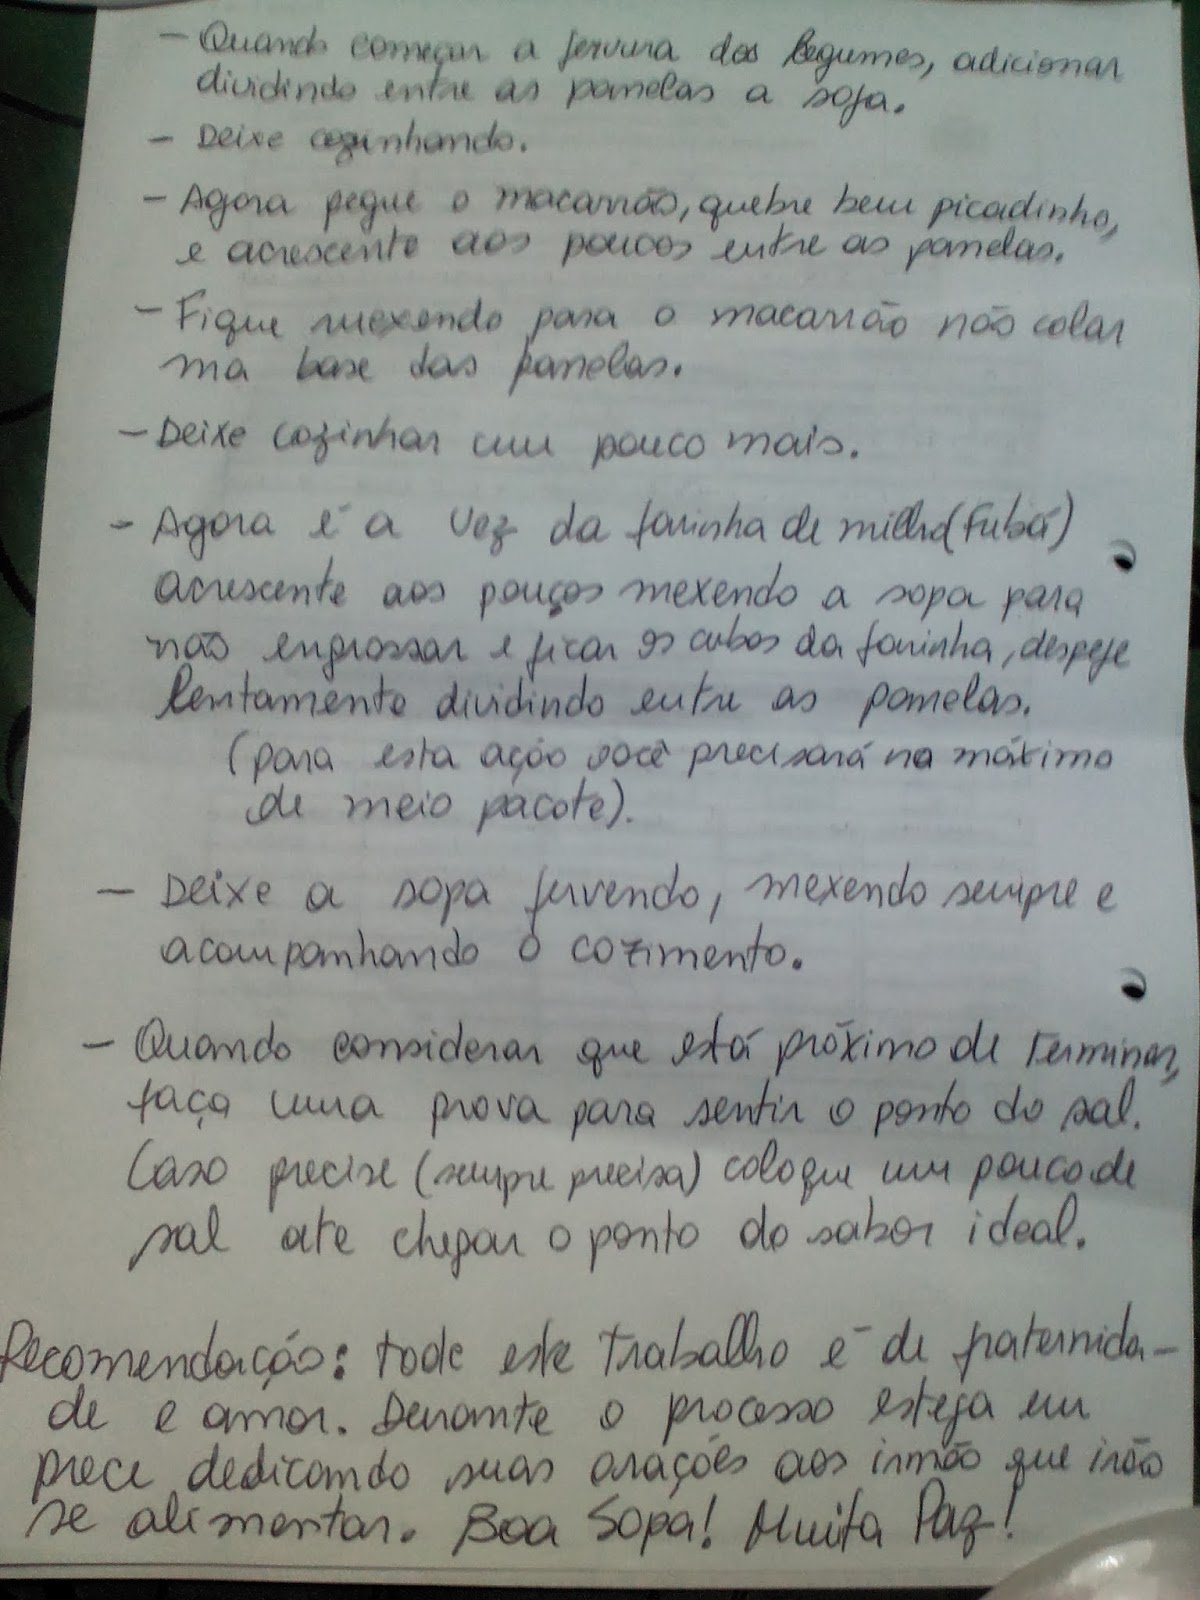 - Quando começar a fervura dos legumes, adicionar
dividindo entre as panelas a soja.
- Deixe cozinhando.
- Agora pegue o macarrão, quebre bem picadinho,
e acrescente aos poucos entre as panelas.
- Fique mexendo para o macarrão não colar
na base das panelas.
- Deixe cozinhar um pouco mais.
- Agora é a vez da farinha de milho (Fubá)
acrescente aos pouços mexendo a sopa para
não engrossar e ficar os cubos da farinha, despeje
lentamente dividindo entre as panelas.
(para esta ação você precisará no máximo
de meio pacote).
- Deixe a sopa fervendo, mexendo sempre e
acompanhando o cozimento.
- Quando considerar que está próximo de terminar,
faça uma prova para sentir o ponto do sal.
Caso precise (sempre precisa) coloque um pouco de
sal ate chegar o ponto do sabor ideal.
Recomendação: todo este trabalho é de fraternida-
de e amor. Durante o processo esteja em
prece dedicando suas orações aos irmão que irão
se alimentar. Boa Sopa! Muita Paz!